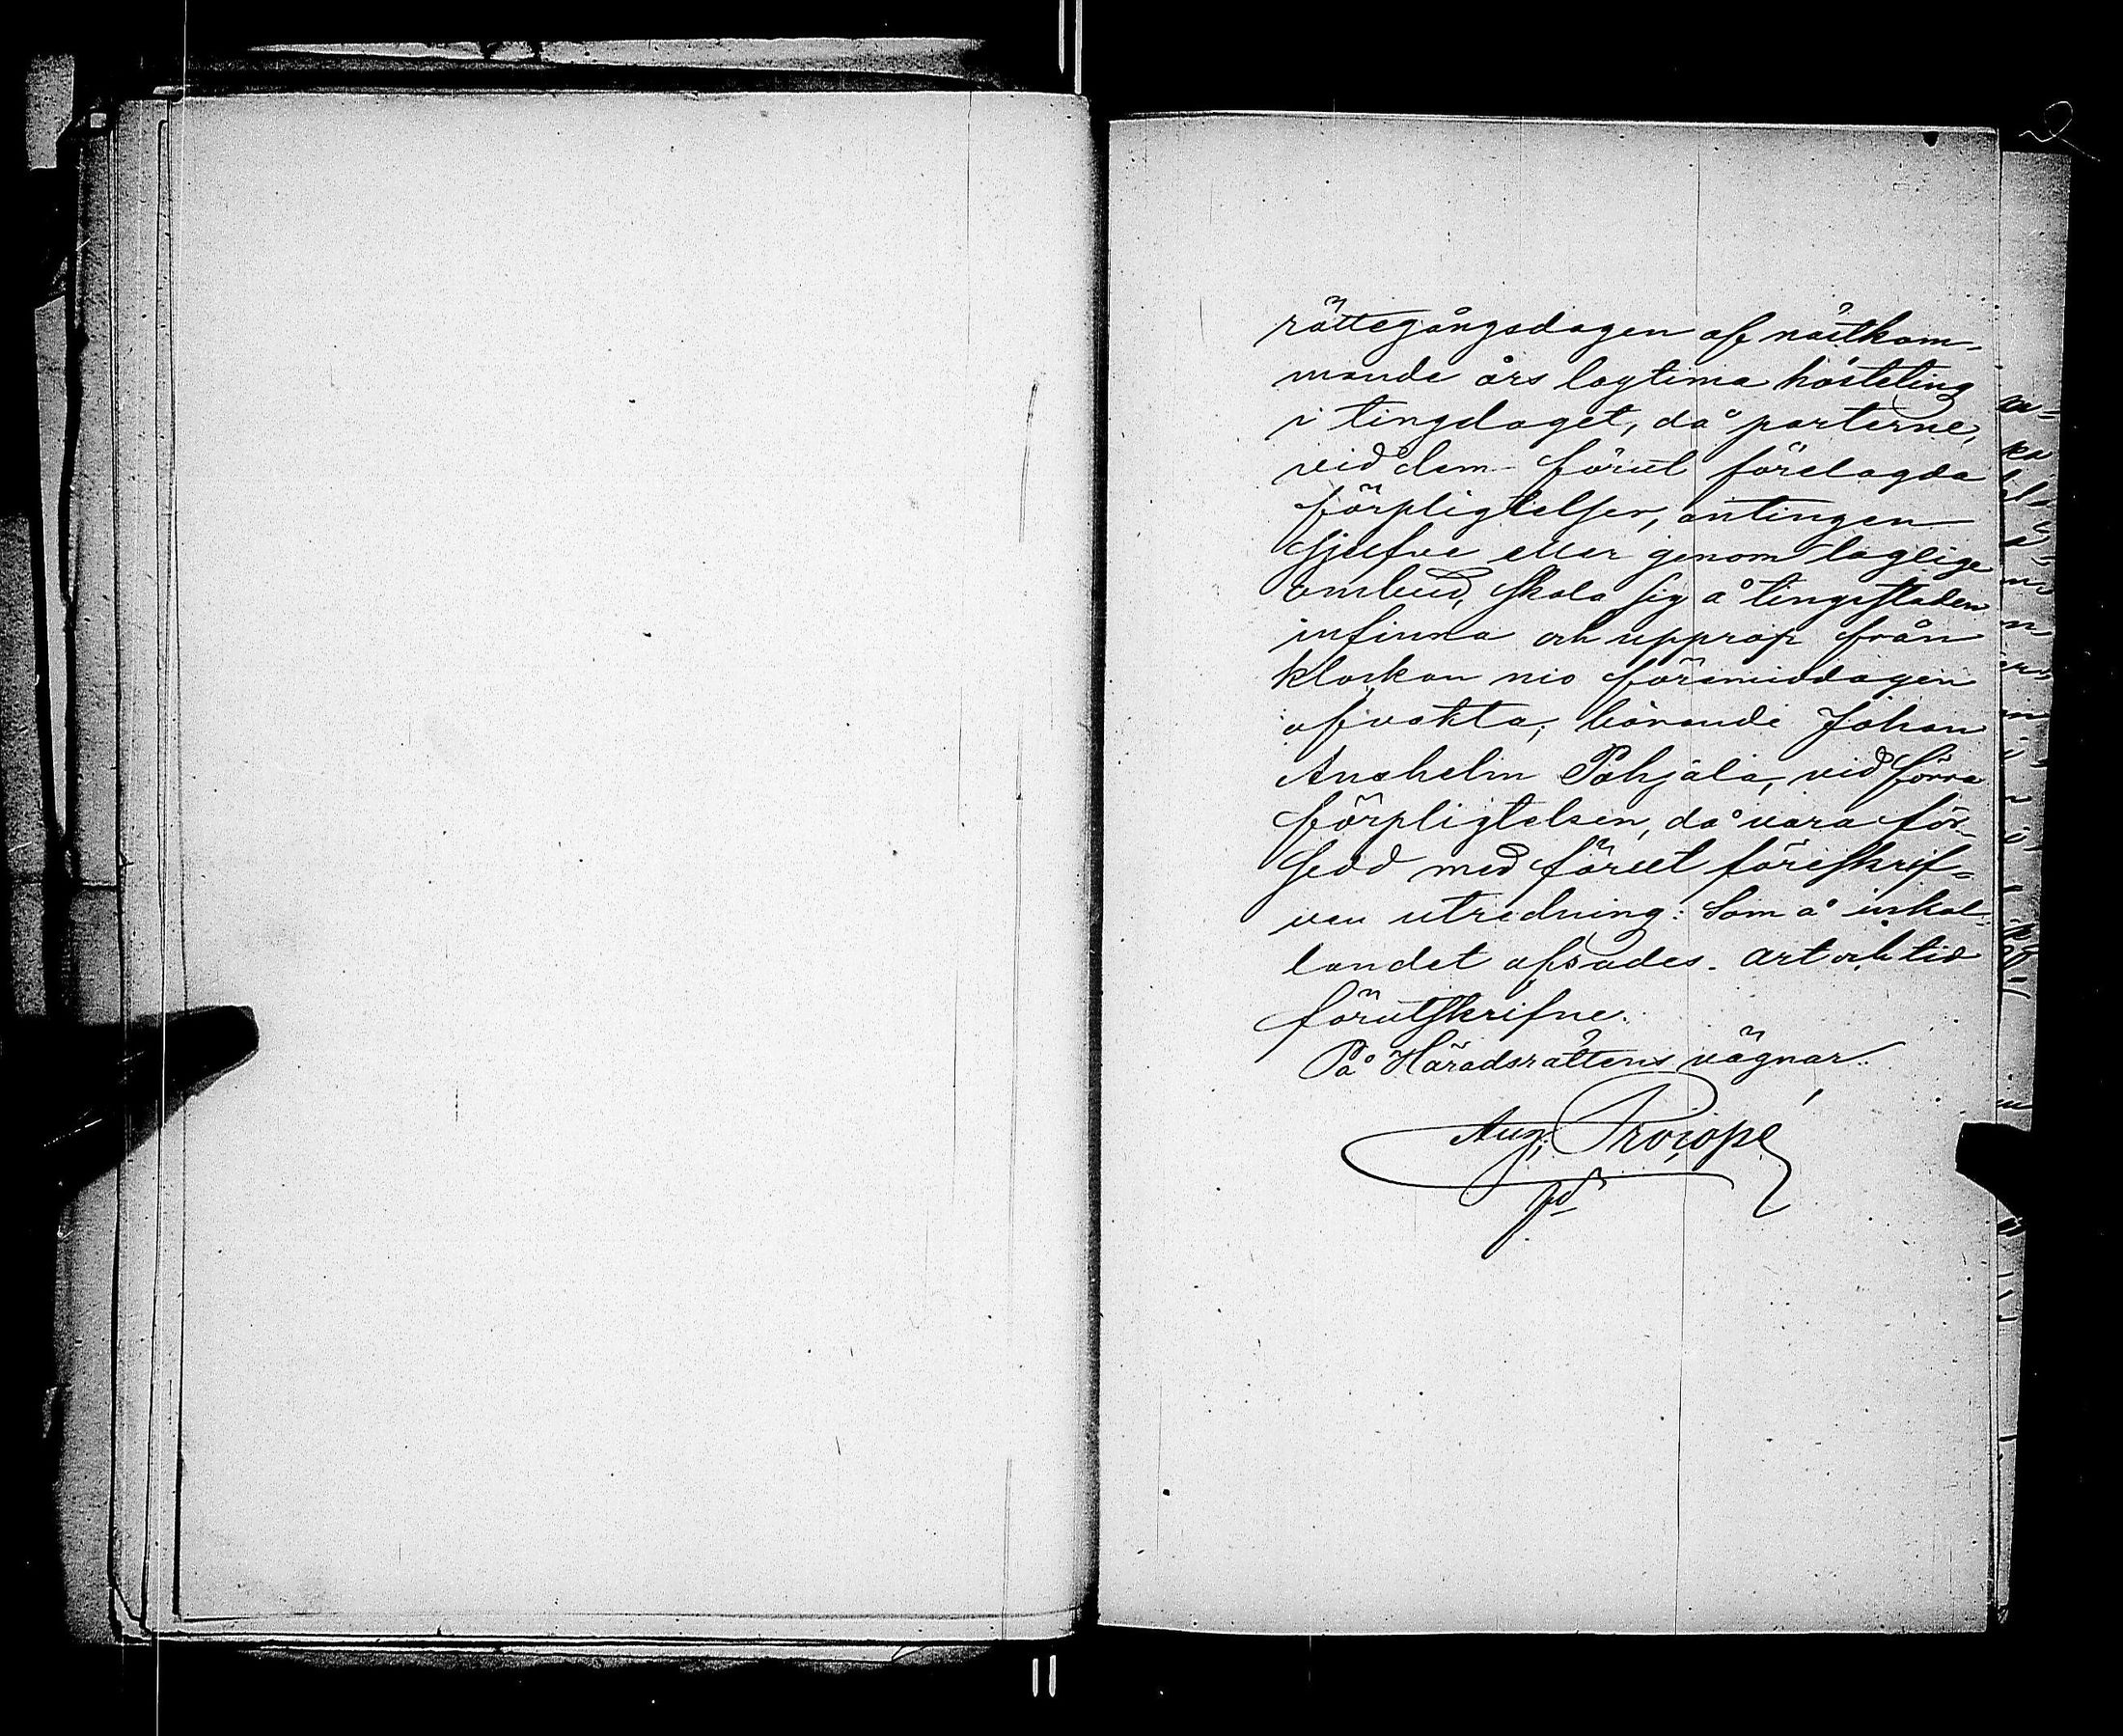 rättegångsdagen af nästkom-
mande års lagtima hösteting
i tingslaget, då parterne,
vid dem förut förelagda
förpligtelser, antingen
sjelfve eller genom laglige
ombud, skola sig å tingsstaden
infinna och upprop från
klockan nio förmiddagen
afvakta, börande Johan
Anshelm Pohjala, vid förra
förpligtelsen, då vara för-
sedd med förut föreskrif-
ven utredning: Som å inkal-
landet afsades. Art och tid
förutskrifne.
På Häradsrättens vägnar:
Aug. Procopé